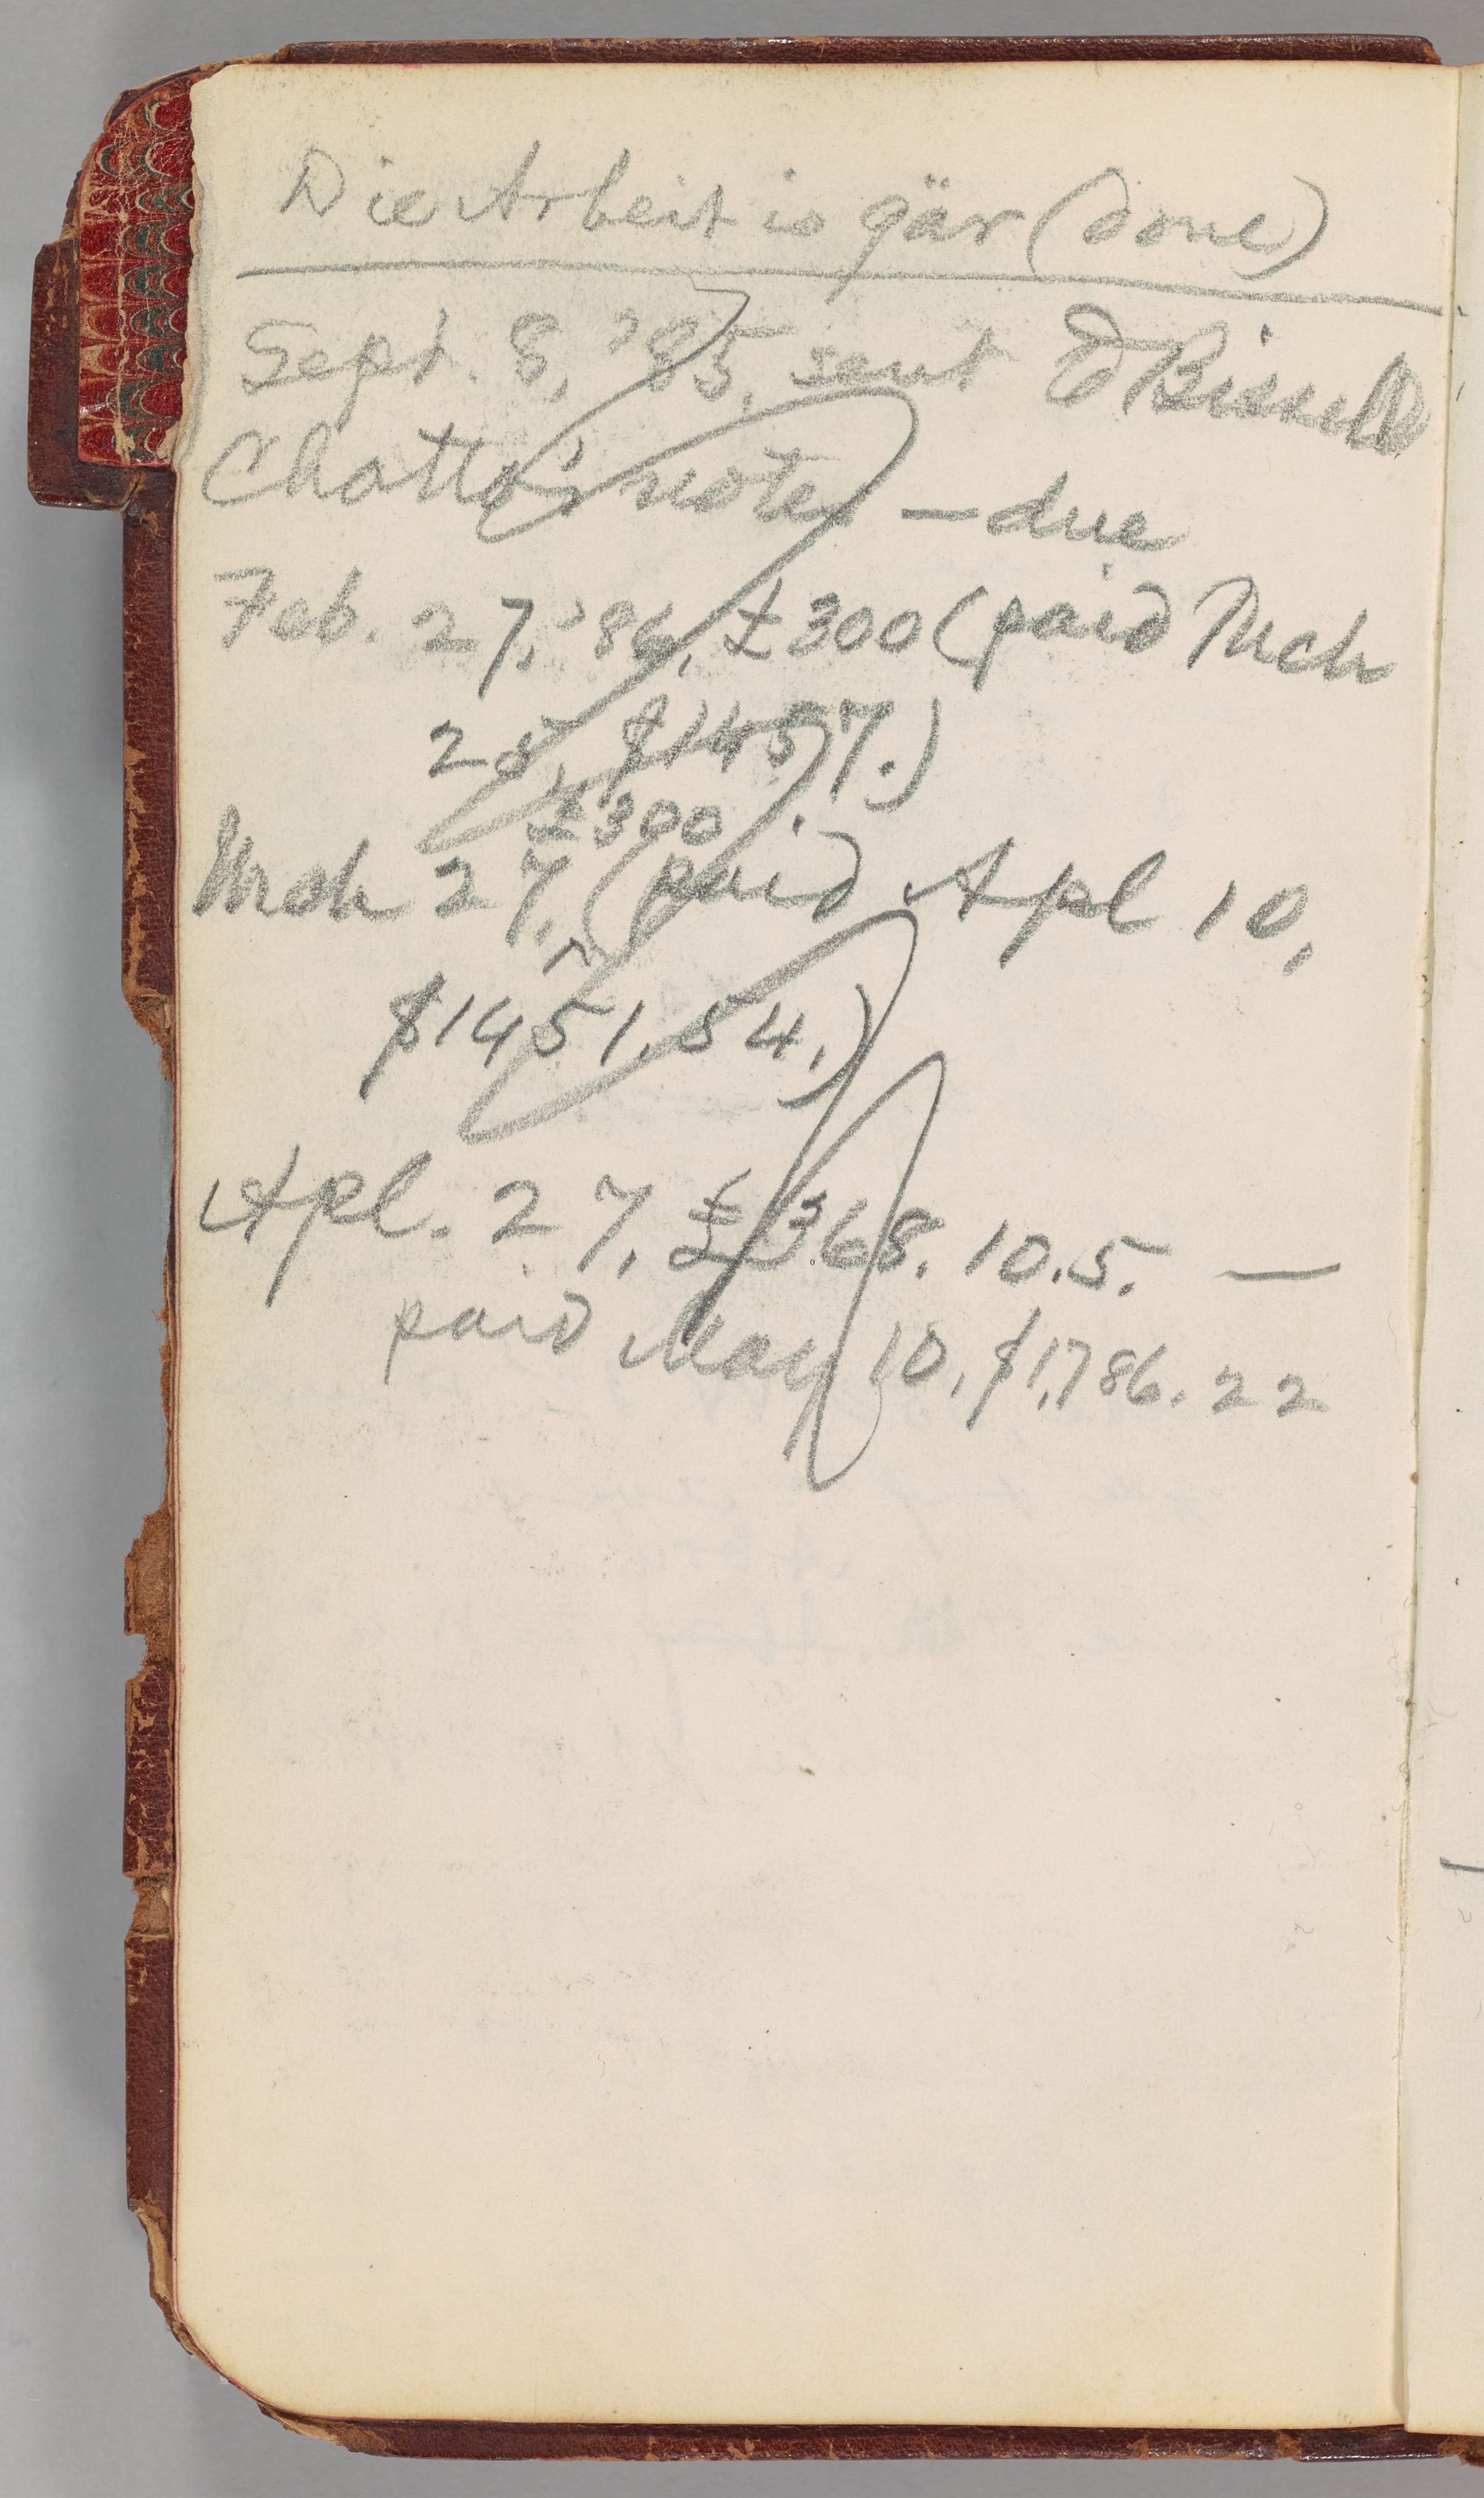 Die Arbeit is gär (done)
Sept. 8, '85, sent Bissell
Chatto's notes — due
Feb. 27, '86, £300 (paid Mch
25, $1457.)
£300
Mch 27, (paid Apl 10,
$1451.54.)
Apl. 27, £368.10.5. —
paid May 10, $1,786.22